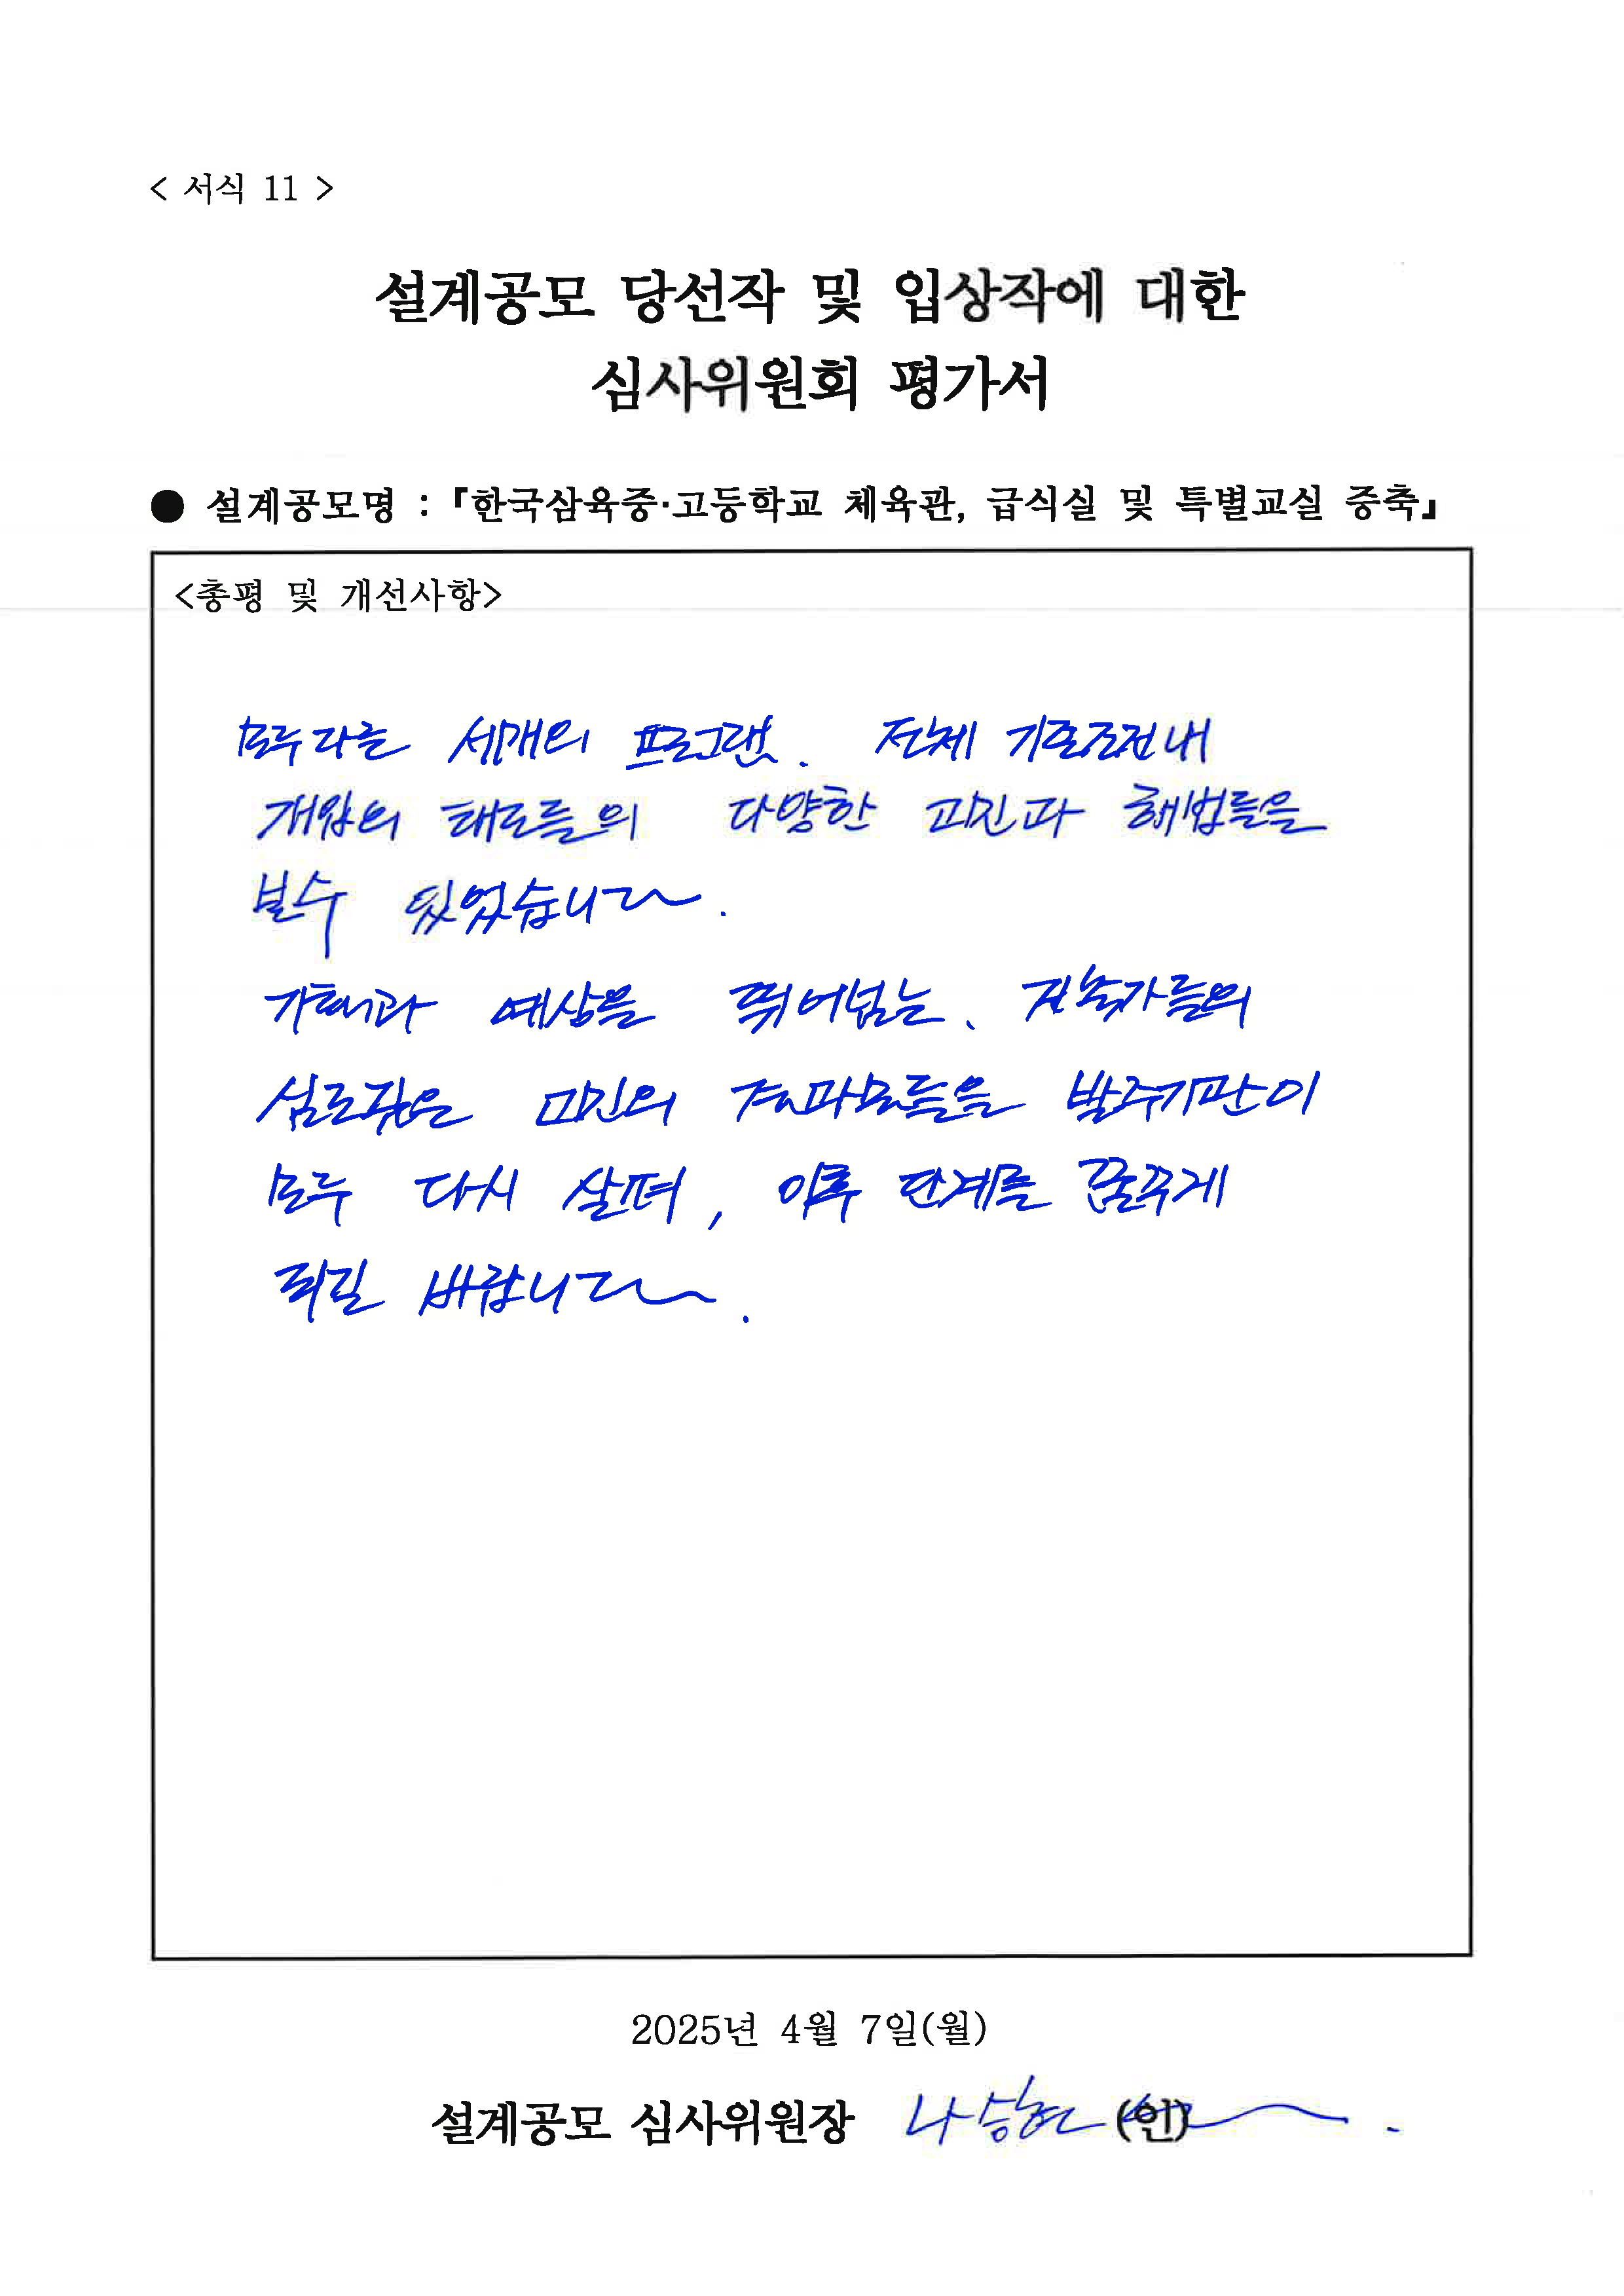 < 서식 11 >
설계공모 당선작 및 입상작에 대한
심사위원회 평가서
● 설계공모명 : 『한국삼육중·고등학교 체육관, 급식실 및 특별교실 증축』
<총평 및 개선사항>
모두 다른 세개의 프로그램. 전체 기존조건내
개입의 태도들의 다양한 고민과 해법들을
볼수 있었습니다.
기대와 예상을 뛰어넘는, 건축가들의
심도깊은 고민의 결과물들을 발주기관이
모두 다시 살펴, 이후 단계를 꿈꾸게
되길 바랍니다.
2025년 4월 7일(월)
설계공모 심사위원장 나승현 (인)